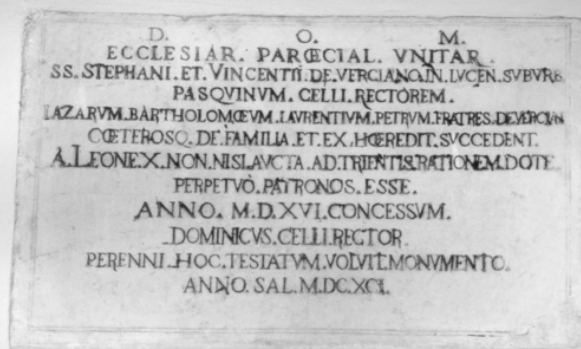 D. O. M.
ECCLESIAR. PARŒCIAL. VNITAR.
SS. STEPHANI. ET. VINCENTII. DE. VERCIANO. IN. LVCEN. SVBVRB.
PASQVINVM. CELLI. RECTOREM.
LAZARVM. BARTHOLOMŒVM. LAVRENTIVM. PETRVM. FRATRES. DE VERCIAN
CŒTEROSQ. DE. FAMILIA. ET. EX. HŒREDIT. SVCCEDENT.
A. LEONE X. NON. NISI. AVCTA. AD. TRIENTIS. RATIONEM. DOTE
PERPETVÒ. PATRONOS. ESSE.
ANNO. M.D.XVI. CONCESSVM.
DOMINICVS. CELLI. RECTOR.
PERENNI. HOC. TESTATVM. VOLVIT. MONVMENTO.
ANNO. SAL. M.DC.XCI.